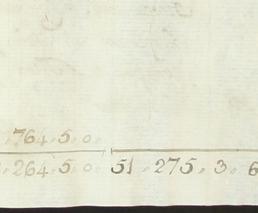 764. 5. 0.
. 264. 5. 0. 51. 275. 3. 6